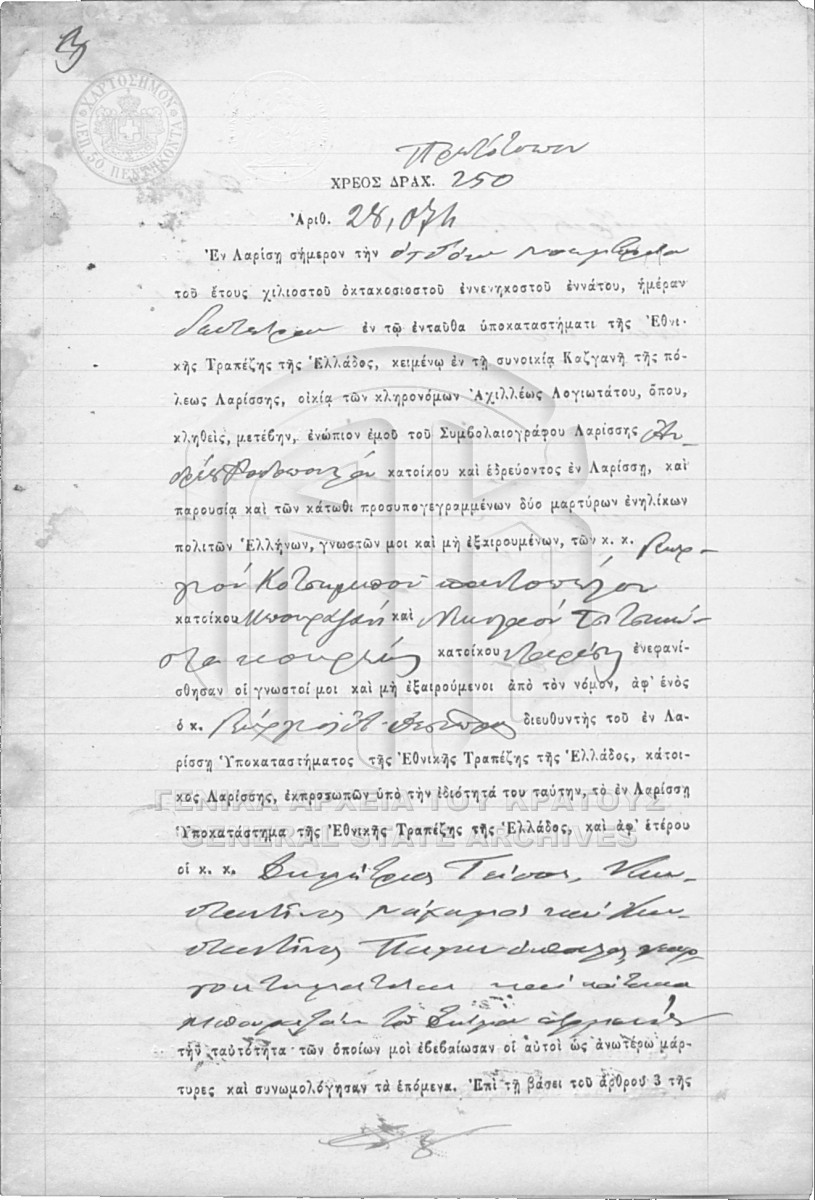 ΧΑΡΤΟΣΗΜΟΝ
ΛΕΠ. 50 ΠΕΝΤΗΚΟΝΤΑ
Πρωτότυπον
ΧΡΕΟΣ ΔΡΑΧ. 250
Ἀριθ. 28,074
Ἐν Λαρίσῃ σήμερον τὴν ὀγδόην
τοῦ ἔτους χιλιοστοῦ ὀκτακοσιοστοῦ ἐννενηκοστοῦ ἐννάτου, ἡμέραν
Δευτέραν ἐν τῷ ἐνταῦθα ὑποκαταστήματι τῆς Ἐθνι-
κῆς Τραπέζης τῆς Ἑλλάδος, κειμένῳ ἐν τῇ συνοικίᾳ Καζγανῆ τῆς πό-
λεως Λαρίσσης, οἰκίᾳ τῶν κληρονόμων Ἀχιλλέως Λογιωτάτου, ὅπου,
κληθεὶς, μετέβην, ἐνώπιον ἐμοῦ τοῦ Συμβολαιογράφου Λαρίσσης Ἀν-
δρέα Ροδοπούλου κατοίκου καὶ ἑδρεύοντος ἐν Λαρίσσῃ, καὶ
παρουσίᾳ καὶ τῶν κάτωθι προσυπογεγραμμένων δύο μαρτύρων ἐνηλίκων
πολιτῶν Ἑλλήνων, γνωστῶν μοι καὶ μὴ ἐξαιρουμένων, τῶν κ. κ. Γεωρ-
γίου παντοπώλου
κατοίκου καὶ Νικολάου
κατοίκου Λαρίσης ἐνεφανί-
σθησαν οἱ γνωστοί μοι καὶ μὴ ἐξαιρούμενοι ἀπὸ τὸν νόμον, ἀφ' ἑνὸς
ὁ κ. Γεώργιος διευθυντὴς τοῦ ἐν Λα-
ρίσσῃ Ὑποκαταστήματος τῆς Ἐθνικῆς Τραπέζης τῆς Ἑλλάδος, κάτοι-
κος Λαρίσσης, ἐκπροσωπῶν ὑπὸ τὴν ἰδιότητά του ταύτην, τὸ ἐν Λαρίσσῃ
ΓΕΝΙΚΑ ΑΡΧΕΙΑ ΤΟΥ ΚΡΑΤΟΥΣ
Ὑποκατάστημα τῆς Ἐθνικῆς Τραπέζης τῆς Ἑλλάδος, καὶ ἀφ' ἑτέρου
GENERAL STATE ARCHIVES
οἱ κ. κ. Δημήτριος Κων-
σταντῖνος καὶ Κων-
σταντῖνος
καὶ κάτοικοι
τοῦ Δήμου
τὴν ταυτότητα τῶν ὁποίων μοὶ ἐβεβαίωσαν οἱ αὐτοὶ ὡς ἀνωτέρω μάρ-
τυρες καὶ συνωμολόγησαν τὰ ἑπόμενα. Ἐπὶ τῇ βάσει τοῦ ἄρθρου 3 τῆς